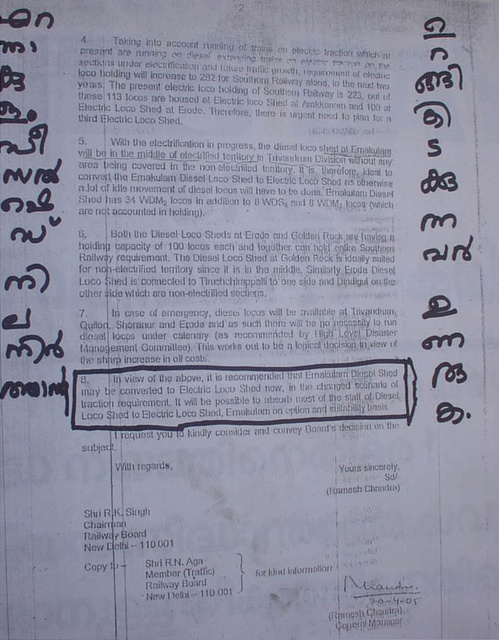 2
4. Taking into account running of trains on electric traction which at
present are running on diesel extending trains on electric traction on the
sections under electrification and future traffic growth, requirement of electric
loco holding will increase to 282 for Southern Railway alone, in the next two
years. The present electric loco holding of Southern Railway is 223, out of
these 113 locos are housed at Electric loco Shed at Arakkonam and 100 at
Electric Loco Shed at Erode. Therefore, there is urgent need to plan for a
third Electric Loco Shed.
5. With the electrification in progress, the diesel loco shed at Ernakulam
will be in the middle of electrified territory in Trivandrum Division without any
area being covered in the non-electrified territory. It is, therefore, ideal to
convert the Ernakulam Diesel Loco Shed to Electric Loco Shed as otherwise
a lot of idle movement of diesel locos will have to be done. Ernakulam Diesel
Shed has 34 WDM2 locos in addition to 8 WDS6 and 8 WDM2 locos (which
are not accounted in holding).
6. Both the Diesel Loco Sheds at Erode and Golden Rock are having a
holding capacity of 100 locos each and together can hold entire Southern
Railway requirement. The Diesel Loco Shed at Golden Rock is ideally suited
for non-electrified territory since it is in the middle. Similarly Erode Diesel
Loco Shed is connected to Tiruchchirappalli to one side and Dindigul on the
other side which are non-electrified sections.
7. In case of emergency, diesel locos will be available at Trivandrum,
Quilon, Shoranur and Erode and as such there will be no necessity to run
diesel locos under catenary (as recommended by High Level Disaster
Management Committee). This works out to be a logical decision in view of
the sharp increase in oil costs.
8. In view of the above, it is recommended that Ernakulam Diesel Shed
may be converted to Electric Loco Shed now, in the changed scenario of
traction requirement. It will be possible to absorb most of the staff of Diesel
Loco Shed to Electric Loco Shed, Ernakulam on option and suitability basis.
I request you to kindly consider and convey Board's decision on the
subject.
With regards,
Yours sincerely,
Sd/-
(Ramesh Chandra)
Shri R.K. Singh
Chairman
Railway Board
New Delhi – 110 001
Copy to – Shri R.N. Aga
Member (Traffic)
Railway Board
New Delhi – 110 001
for kind information
(Ramesh Chandra)
General Manager
ഉറങ്ങികിടക്കുന്നവർ ഉണരുക.